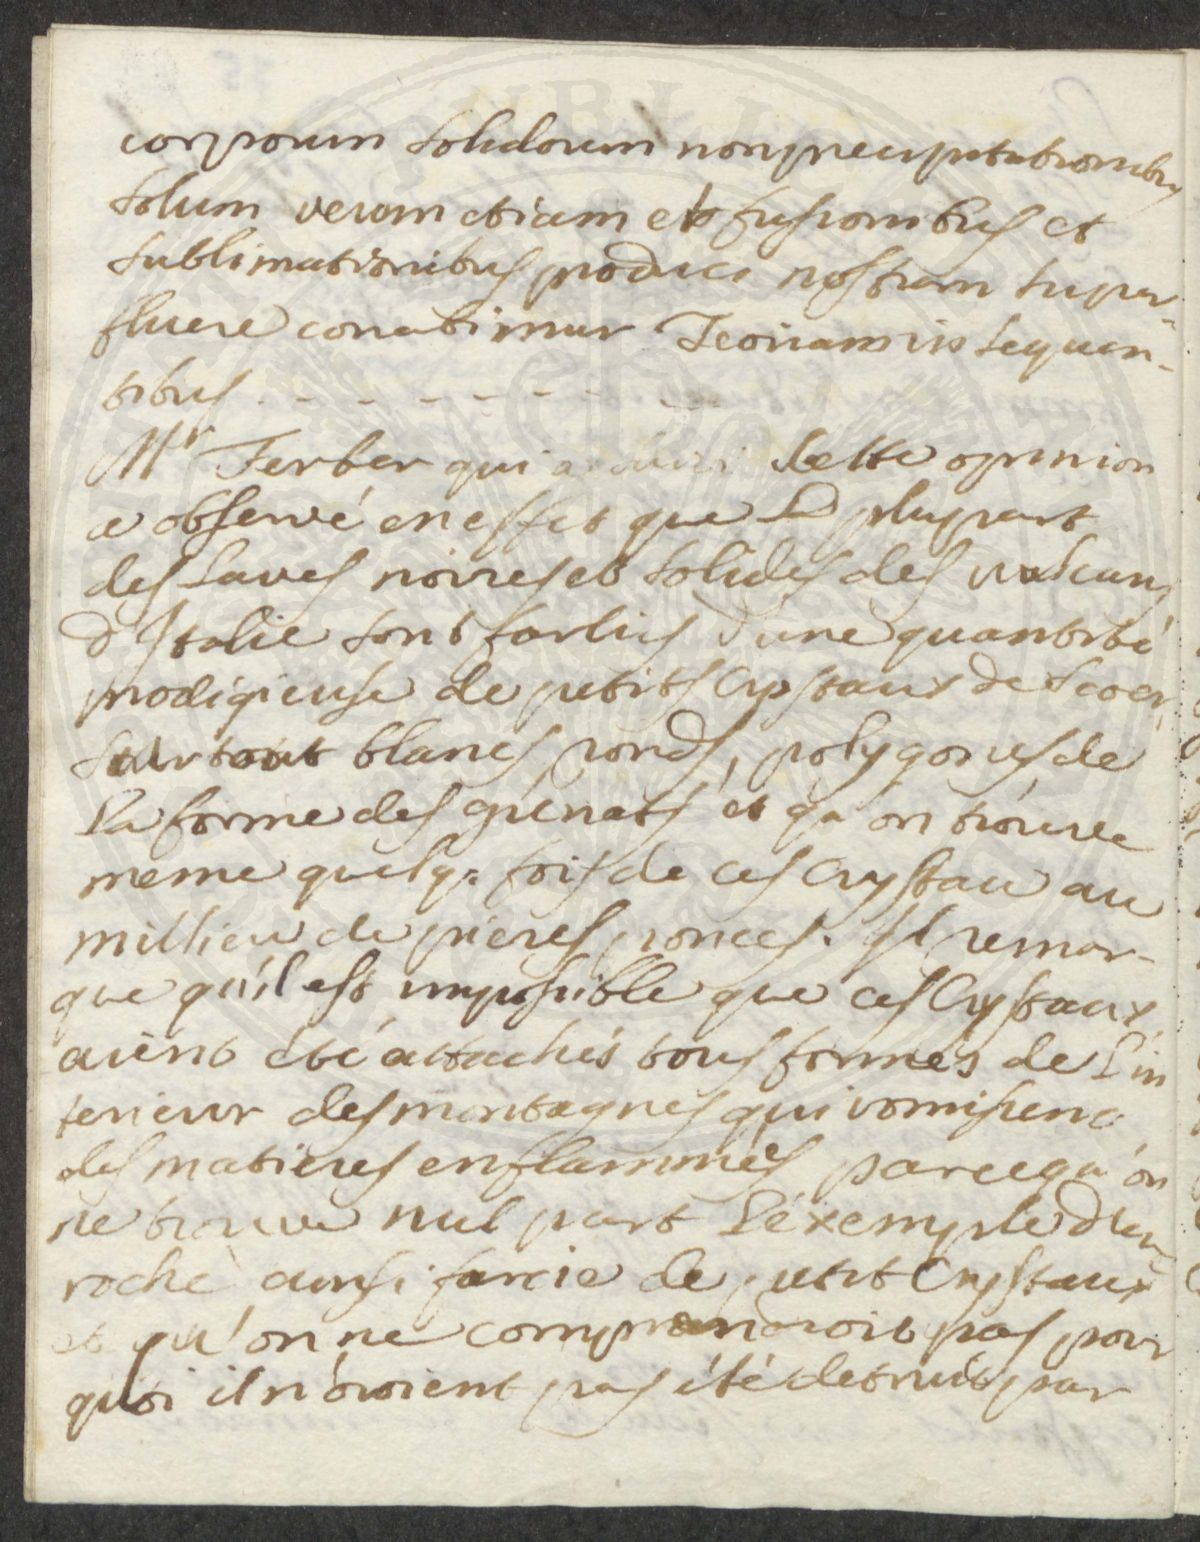 corporum solidorum non precipitationibus
solum verum etiam et fusionibus et
sublimationibus produci nostram super-
fluere conabimur Teoriam in sequen-
tibus - - - - - - - - -
Mr Ferber qui a suivi cette opinion
a observé en effet que la pluspart
des Laves noires et solides des volcans
d'Italie sont farlies d'une quantité
prodigieuse de petits Crystaux de Scoerl
surtout blancs, ronds, polygones de
la forme des grenats et qu'on trouve
meme quelq. fois de ces Crystau au
millieu de pieres ponces. Il remar-
que qu'il est impossible que ces Crystaux
aient été attachés tous formés de l'in
terieur des montagnes qui vomissent
des matieres enflammées parcequ'on
ne trouve nul part l'éxemple d'un
roche aussi farcie de petit Crystaux
et qu'on ne comprandroit pas pour
quoi il n'oroient pas été detruit par